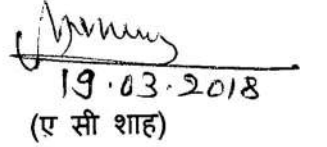 19.03.2018
(ए सी शाह)